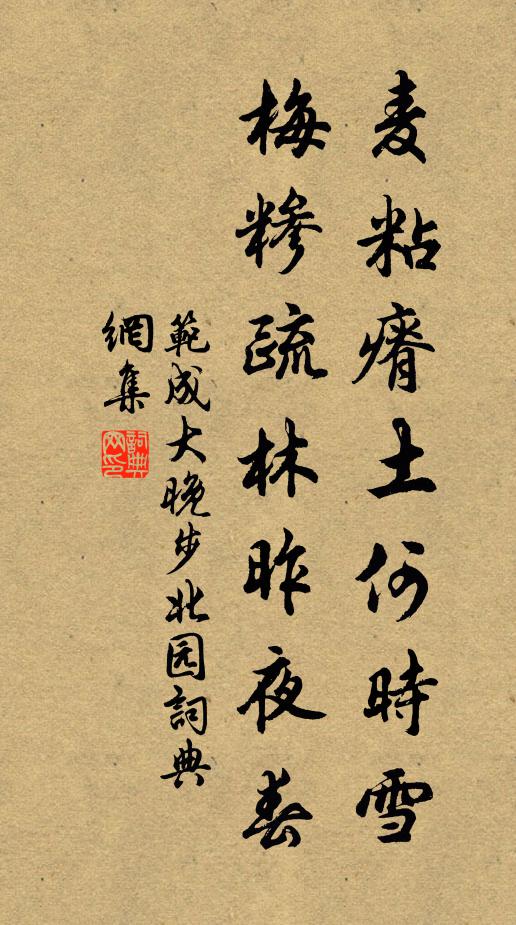 麦粘瘠土何時雪
梅糝疏林昨夜春
範成大晚步北园詞典
網集
詞典网印